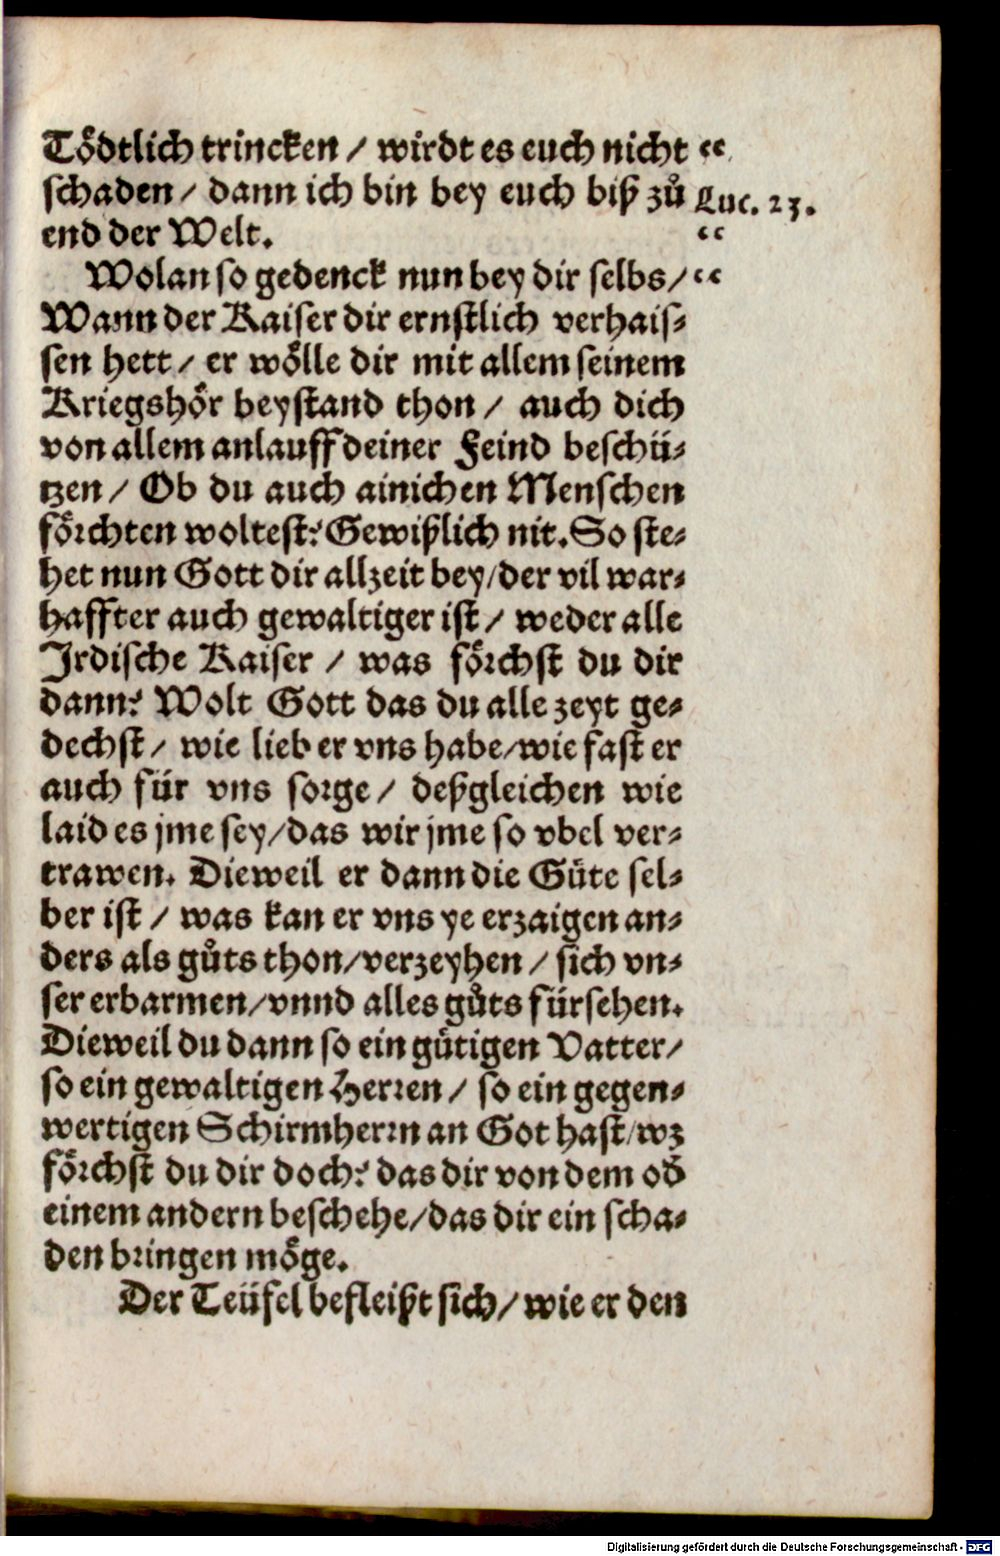 Tödtlich trincken / wirdt es euch nicht “
schaden / dann ich bin bey euch biß zů Luc. 23.
end der Welt. “
Wolan so gedenck nun bey dir selbs / “
Wann der Kaiser dir ernstlich verhais⸗
sen hett / er wölle dir mit allem seinem
Kriegshör beystand thon / auch dich
von allem anlauff deiner Feind beschü⸗
tzen / Ob du auch ainichen Menschen
förchten woltest? Gewißlich nit. So ste⸗
het nun Gott dir allzeit bey / der vil war⸗
haffter auch gewaltiger ist / weder alle
Irdische Kaiser / was förchst du dir
dann? Wolt Gott das du alle zeyt ge⸗
dechst / wie lieb er vns habe / wie fast er
auch für vns sorge / deßgleichen wie
laid es jme sey / das wir jme so vbel ver⸗
trawen. Dieweil er dann die Güte sel⸗
ber ist / was kan er vns ye erzaigen an⸗
ders als gůts thon / verzeyhen / sich vn⸗
ser erbarmen / vnnd alles gůts fürsehen.
Dieweil du dann so ein gütigen Vatter /
so ein gewaltigen Herren / so ein gegen⸗
wertigen Schirmherrn an Got hast / wz
förchst du dir doch? das dir von dem oď
einem andern beschehe / das dir ein scha⸗
den bringen möge.
Der Teüfel befleißt sich / wie er den
Digitalisierung gefördert durch die Deutsche Forschungsgemeinschaft - DFG